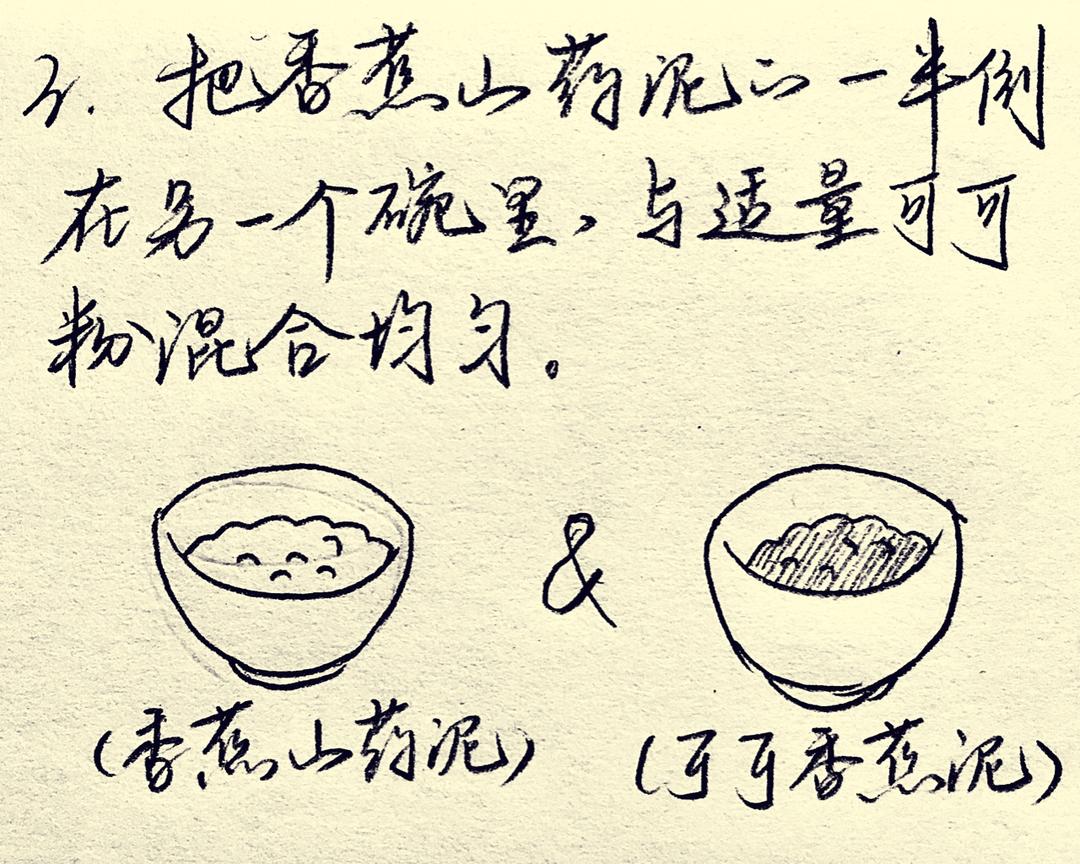 3. 把香蕉山药泥的一半倒
在另一个碗里，与适量可可
粉混合均匀。
&
（香蕉山药泥）
（可可香蕉泥）